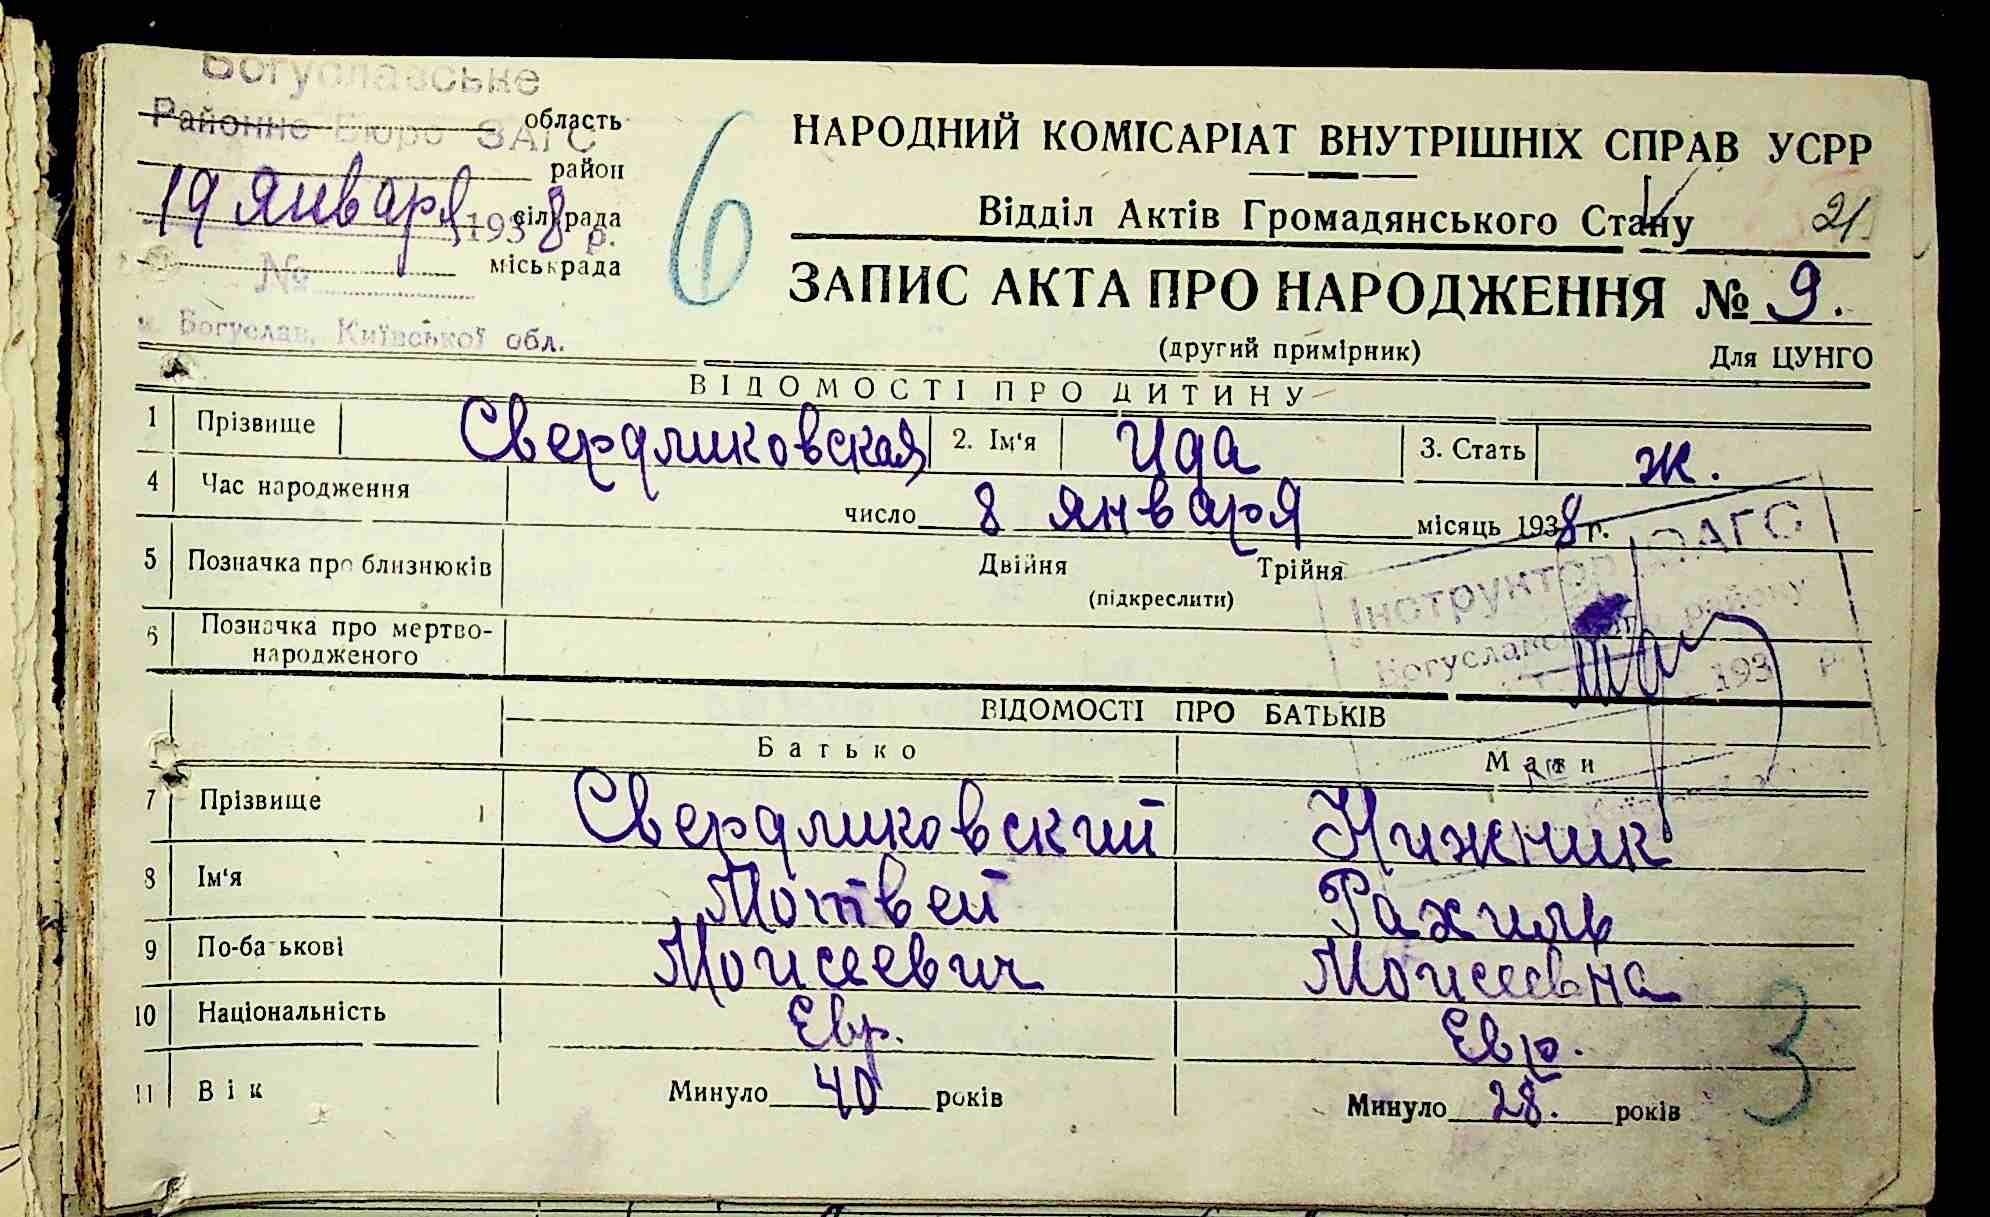 Богуславське
Районне Бюро ЗАГС область
район
19 января 1938 р. сільрада
№ міськрада
м. Богуслав, Київської обл.
6
НАРОДНИЙ КОМІСАРІАТ ВНУТРІШНІХ СПРАВ УСРР
Відділ Актів Громадянського Стану 21
ЗАПИС АКТА ПРО НАРОДЖЕННЯ № 9.
(другий примірник) Для ЦУНГО
ВІДОМОСТІ ПРО ДИТИНУ
1 Прізвище Свердликовская 2. Ім'я Ида 3. Стать ж.
4 Час народження число 8 января місяць 1938 г.
5 Позначка про близнюків Двійня Трійня
(підкреслити)
6 Позначка про мертво-
народженого
Інструктор ЗАГС
Богуславського району
193 р
ВІДОМОСТІ ПРО БАТЬКІВ
Батько Мати
7 Прізвище Свердликовский Нижник
8 Ім'я Мотвей Рахиль
9 По-батькові Моисеевич Моисеевна
10 Національність Евр. Евр.
11 Вік Минуло 40 років Минуло 28. років
3